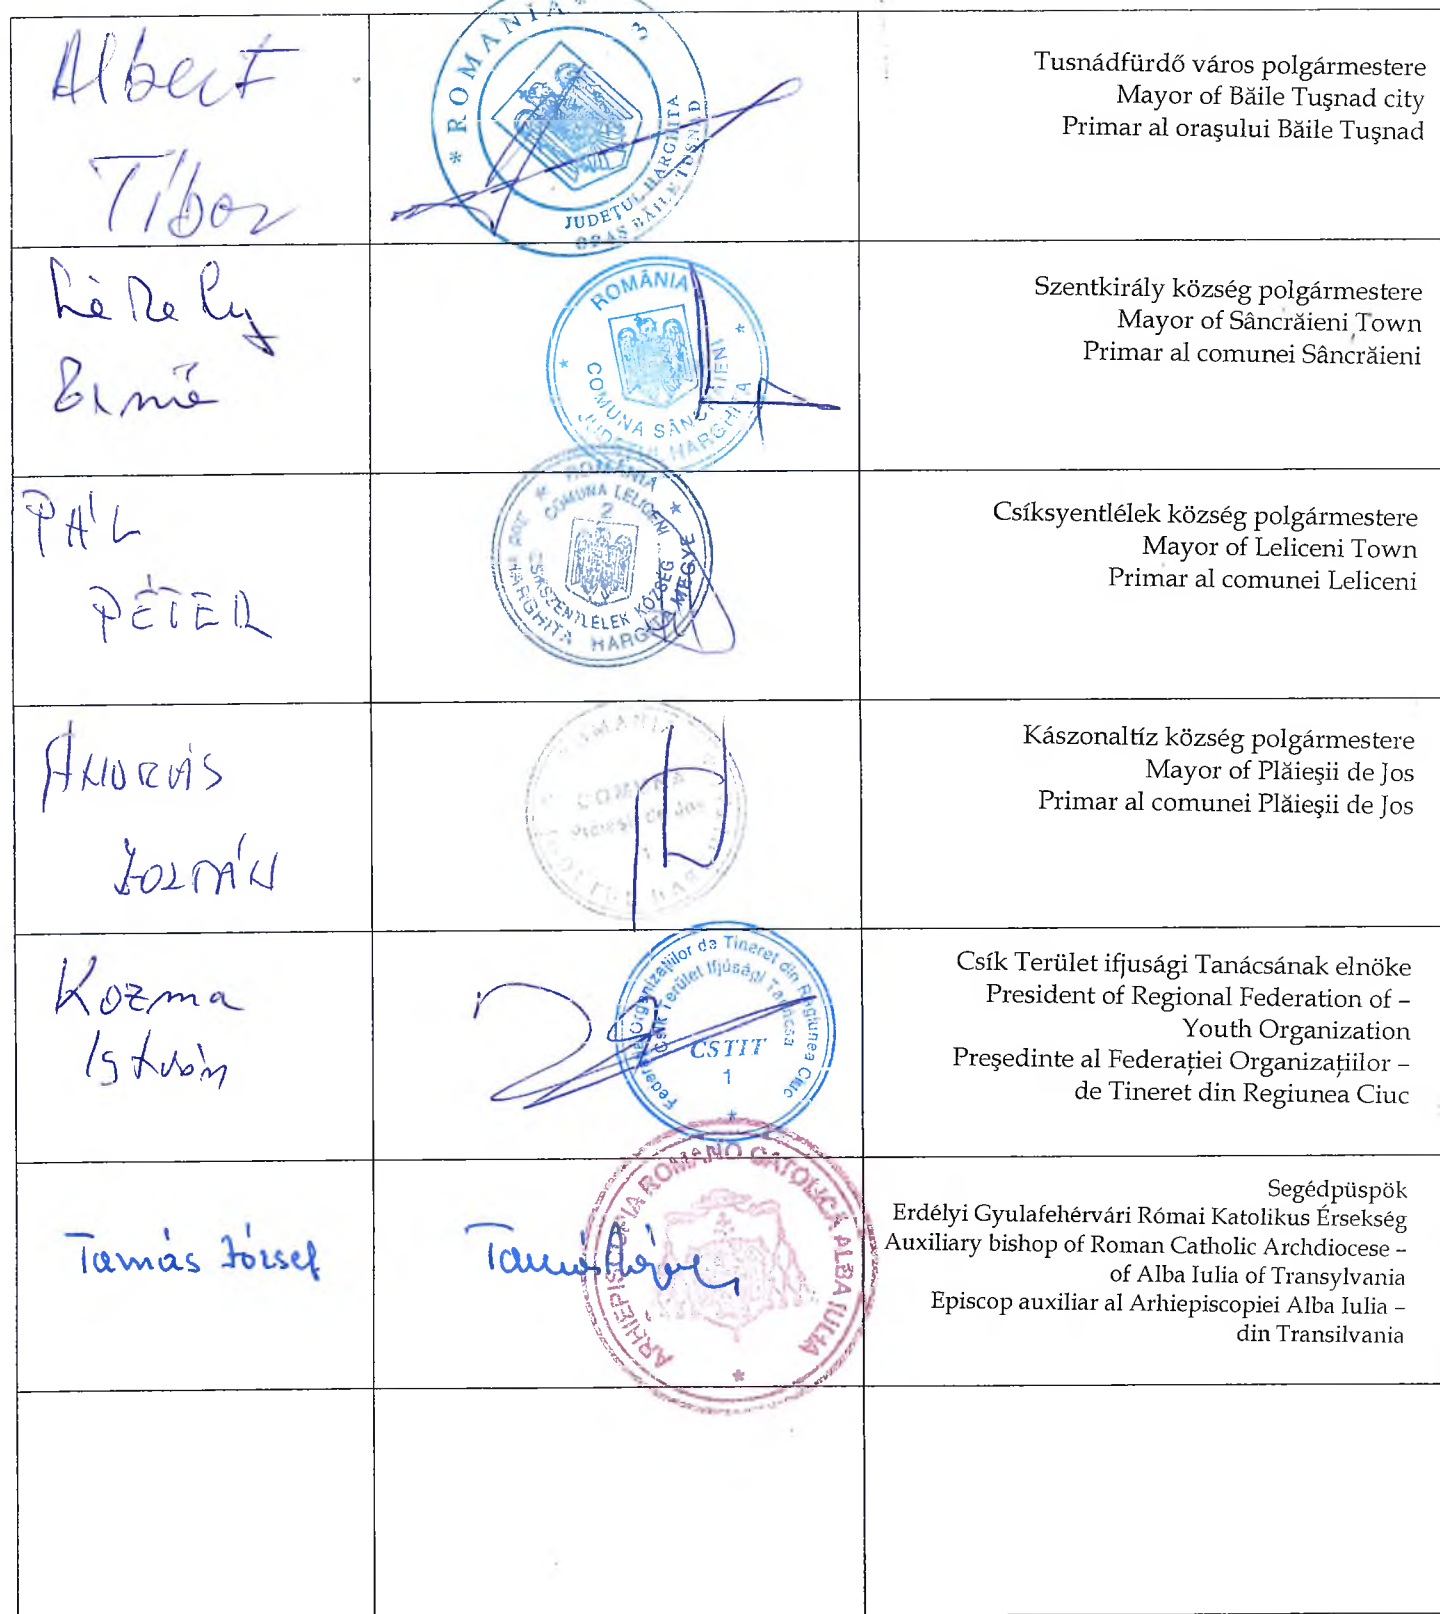 Albert
Tibor
* ROMANIA * 3
JUDEŢUL HARGHITA
ORAŞ BĂILE TUŞNAD
Tusnádfürdő város polgármestere
Mayor of Băile Tuşnad city
Primar al oraşului Băile Tuşnad
Székely
Ernő
ROMÂNIA
COMUNA SÂNCRĂIENI
JUDEŢUL HARGHITA
Szentkirály község polgármestere
Mayor of Sâncrăieni Town
Primar al comunei Sâncrăieni
PÁL
PÉTER
ROMÂNIA
COMUNA LELICENI
2
CSIKSZENTLÉLEK KÖZSÉG
HARGHITA HARGITA MEGYE
Csíksyentlélek község polgármestere
Mayor of Leliceni Town
Primar al comunei Leliceni
ANDRÁS
ZOLTÁN
ROMANIA
COMUNA
Plăieşii de Jos
1
Kászonaltíz község polgármestere
Mayor of Plăieşii de Jos
Primar al comunei Plăieşii de Jos
Kozma
István
Federaţia Organizaţiilor de Tineret din Regiunea Ciuc
Csík Terület Ifjúsági Tanácsa
CSTIT
1
Csík Terület ifjusági Tanácsának elnöke
President of Regional Federation of –
Youth Organization
Preşedinte al Federaţiei Organizaţiilor –
de Tineret din Regiunea Ciuc
Tamás József
Tamás József
ARHIEPISCOPIA ROMANO CATOLICA ALBA IULIA
Segédpüspök
Erdélyi Gyulafehérvári Római Katolikus Érsekség
Auxiliary bishop of Roman Catholic Archdiocese –
of Alba Iulia of Transylvania
Episcop auxiliar al Arhiepiscopiei Alba Iulia –
din Transilvania